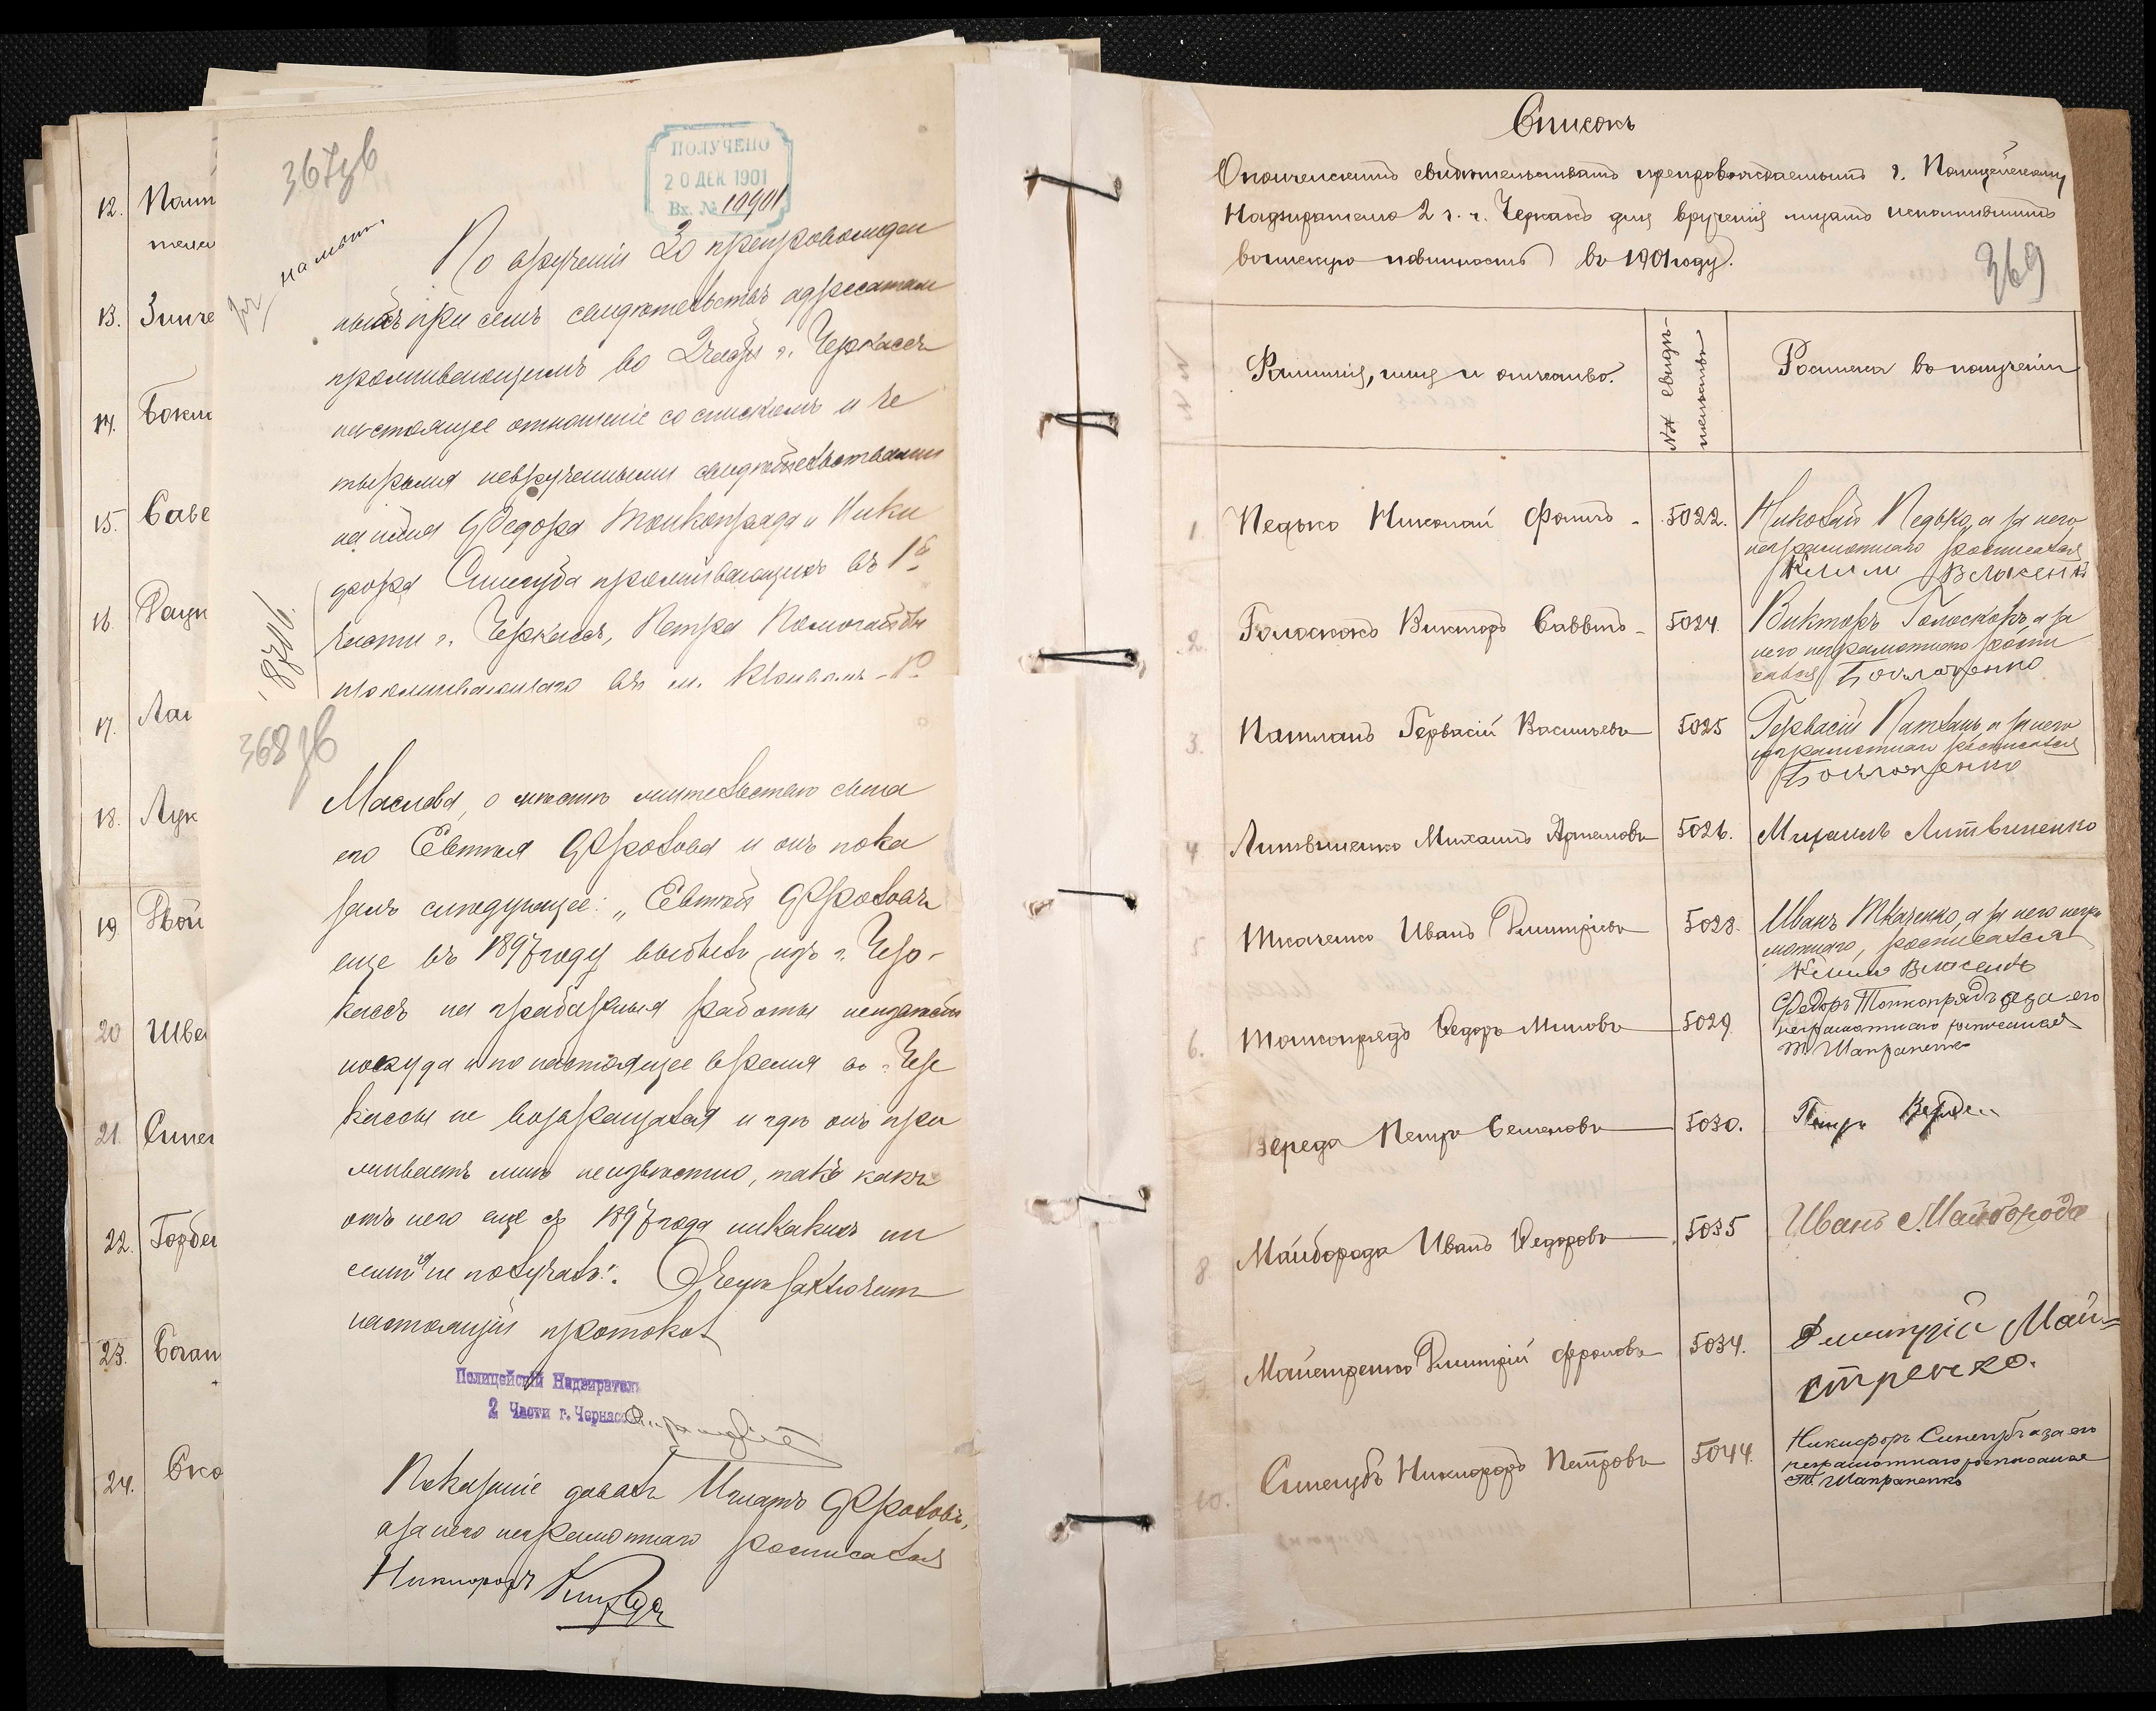 12. Пат
13. Зинче
14. Бокла
15. Саве
16.
17.
18. Лук
19.
20 Шве
21. Синег
22. Горбе
23. Боган
24. Ско
367зв
ПОЛУЧЕНО
20 ДЕК 1901
Вх. № 10901
По врученіи 20 препровожден
ныхъ при семъ свидѣтельствъ адресатам
проживающимъ во 2 части г. Черкассъ
настоящее отношеніе со спискомъ и че
тырьмя неврученными свидѣтельствами
на имя Федора Тонкопряда и Ники
фора Синегуба проживающихъ въ 1й
части г. Черкассъ, Петра
проживающаго въ м.
368 зв
Маслова, о мѣстѣ жительства сына
его Евтихія Фролова и онъ пока
залъ слѣдующее: „Евтихій Фроловъ
еще въ 1897 году выбылъ изъ г. Чер-
кассъ на грабарныя работы неизвѣстно
покуда и по настоящее время въ г. Чер
кассы не возвращался и гдѣ онъ про
живаетъ мнѣ неизвѣстно, такъ какъ
отъ него еще съ 1897 года никакихъ пи
семъ не получалъ". О чемъ заключилъ
настоящій протоколъ
Полицейскій Надзиратель
2 Части г. Черкассъ
Показаніе давалъ Игнатъ Фроловъ,
а за него неграмотнаго росписался
Никифоръ
Списокъ
Ополченскимъ свидѣтельствамъ препровождаемымъ г. Полицейскому
Надзирателю 2 ч. г. Черкасъ для врученія лицамъ исполнившимъ
воинскую повинность въ 1901 году.
369
Фамилія, имя и отчество.
№№ свидѣ-
тельствъ
Росписка въ полученіи
1 Педько Николай Фомичъ - 5022. Николай Педько, а за него
неграмотнаго росписался
Климъ Власенко
2. Голоскокъ Викторъ Саввичъ - 5024. Викторъ Голоскокъ, а за
него неграмотнаго роспи
сался Боклаженко
3. Патланъ Гервасій Васильевъ 5025 Гервасій Патланъ, а за него
неграмотнаго росписался
Боклаженко
4 Литвиненко Михаилъ Артемовъ 5026. Михаилъ Литвиненко
5. Ткаченко Иванъ Дмитріевъ 5028. Иванъ Ткаченко, а за него негра
мотнаго, росписался
Климъ Власенко
6. Тонкопрядъ Ѳедоръ Миновъ 5029. Федоръ Тонкопрядъ а за его
неграмотнаго росписался
Т. Шапраненко
Вереда Петръ Семеновъ 5030. Петръ Вереда
8. Майборода Иванъ Ѳедоровъ 5035 Иванъ Майборода
Майстренко Дмитрій Фроловъ 5034. Дмитрій Май=
стренко.
10. Синегубъ Никифоръ Петровъ 5044. Никифоръ Синегубъ а за его
неграмотнаго росписался
Т. Шапраненко